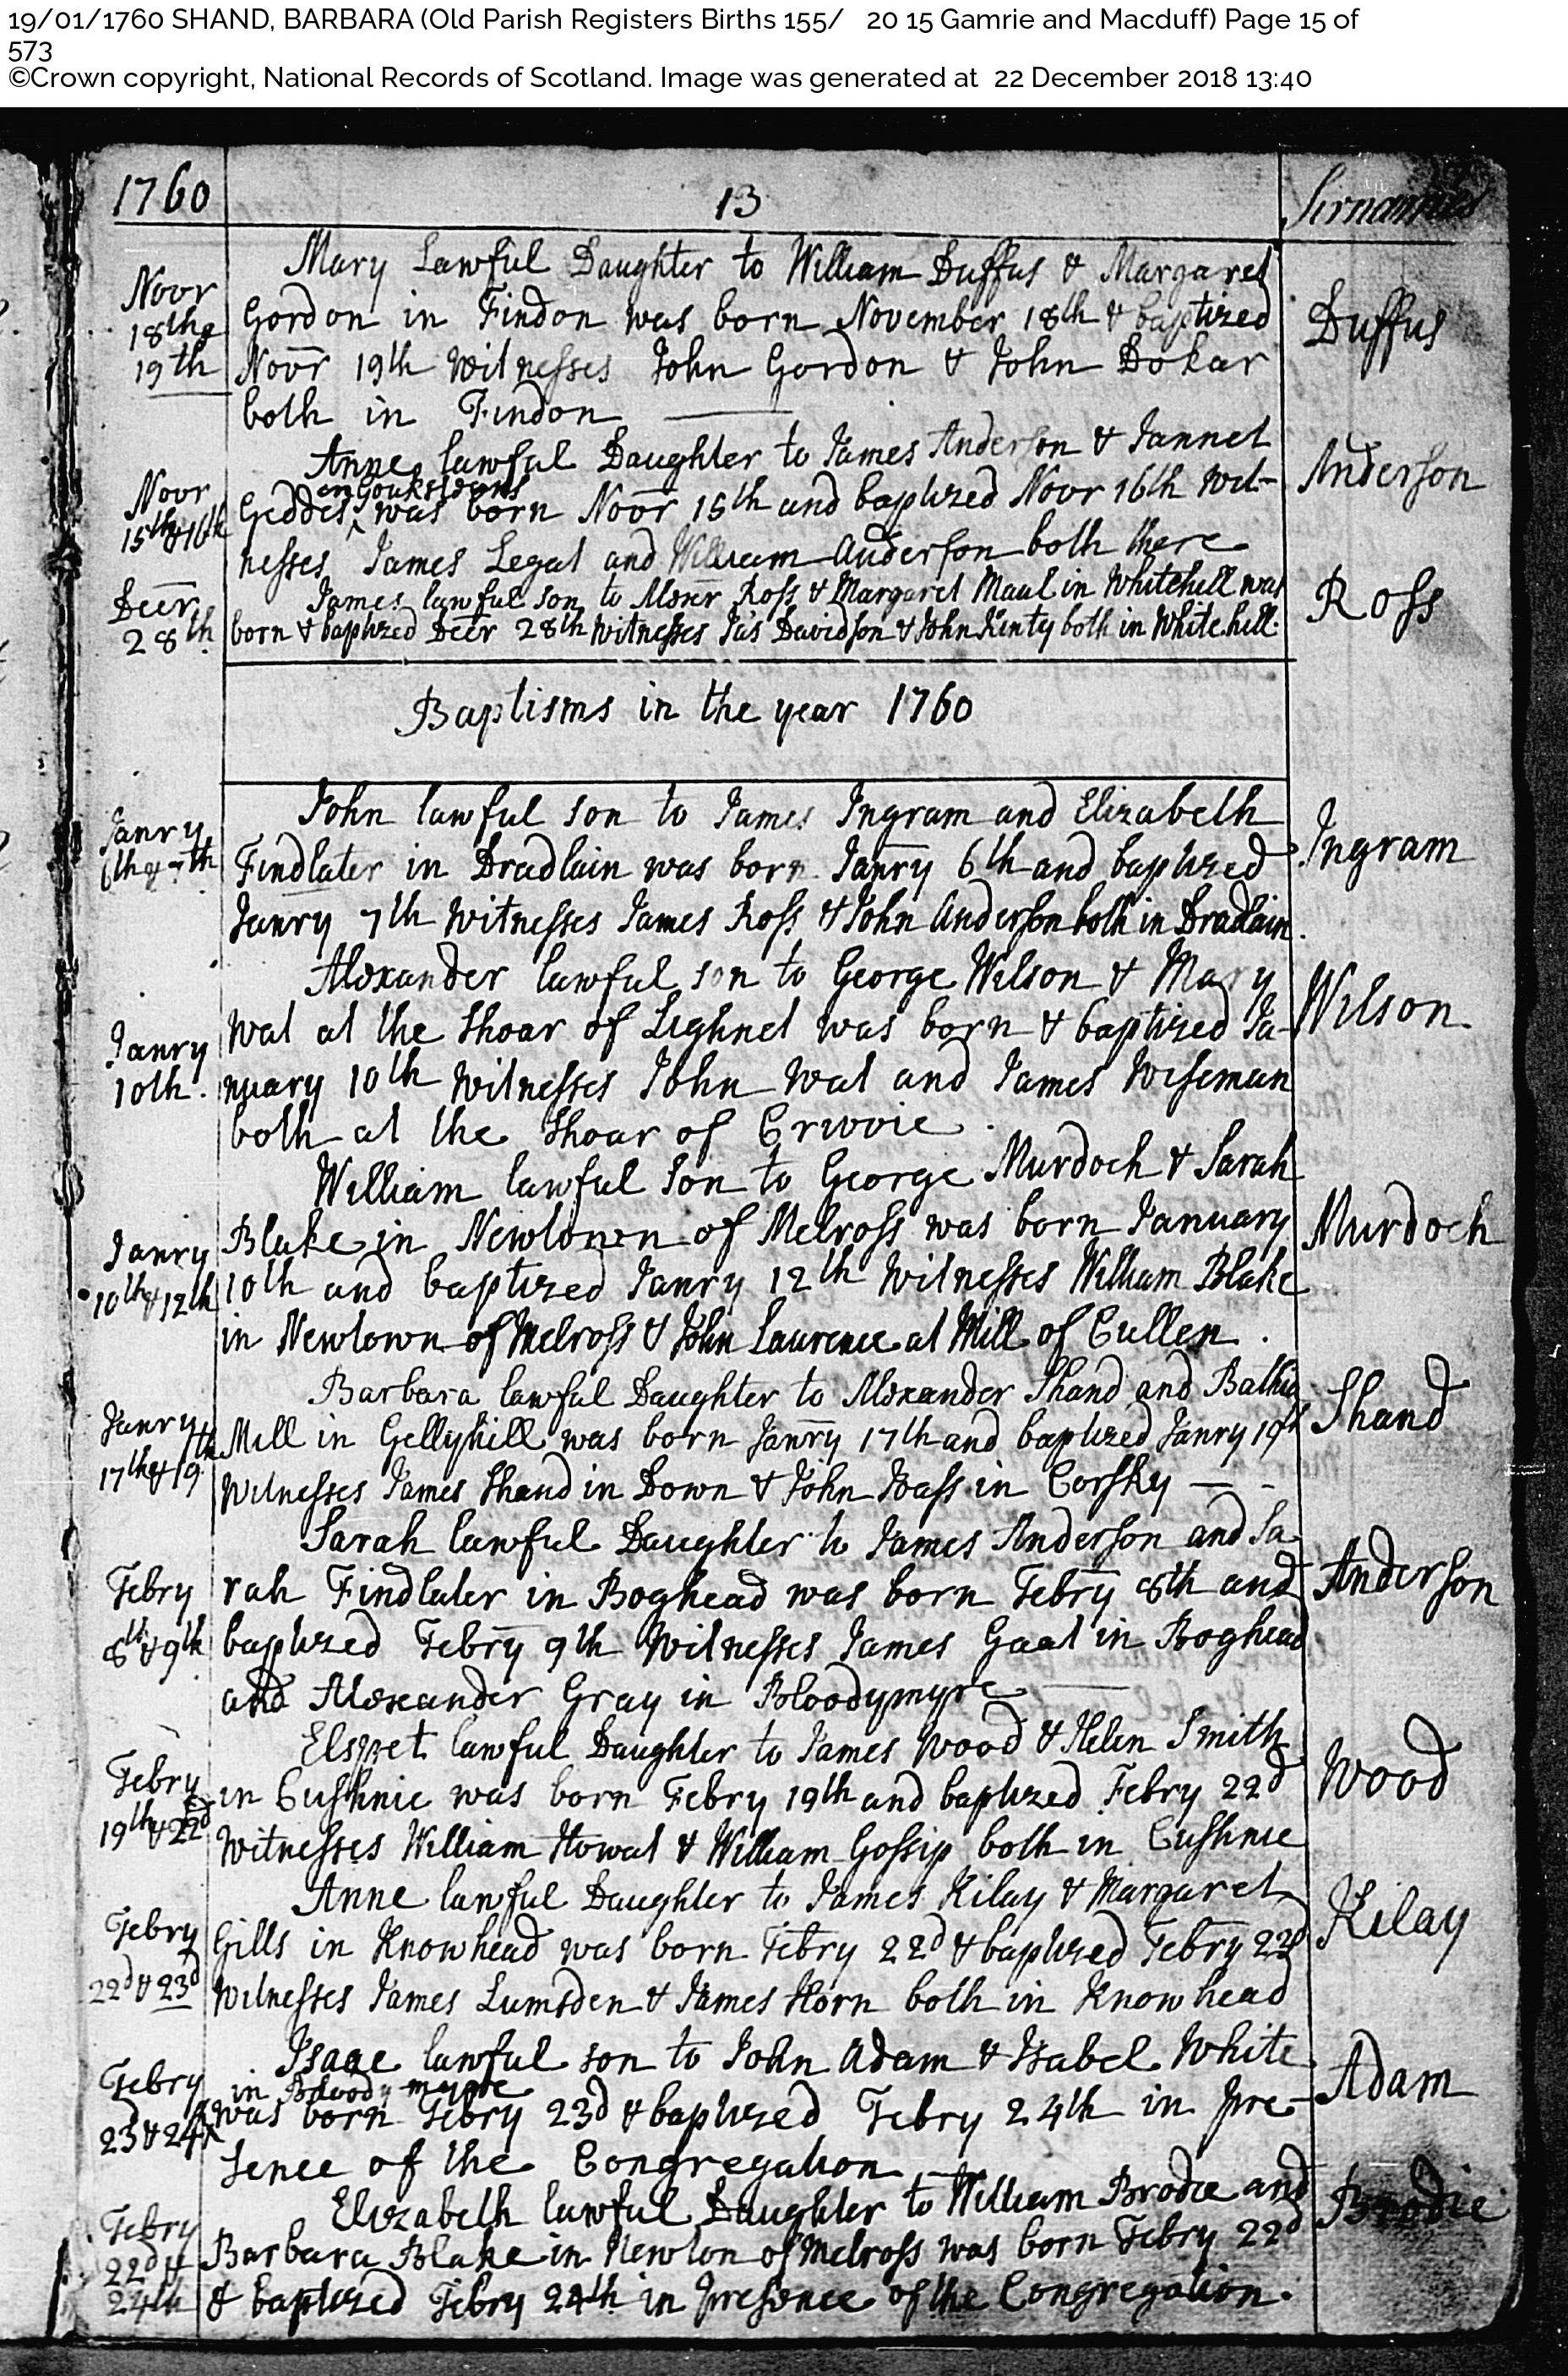 19/01/1760 SHAND, BARBARA (Old Parish Registers Births 155/ 20 15 Gamrie and Macduff) Page 15 of
573
©Crown copyright, National Records of Scotland. Image was generated at 22 December 2018 13:40
1760
13
Sirnames
Novr
18th &
19th
Mary Lawful Daughter to William Duffus & Margaret
Gordon in Findon was born November 18th & baptized
Novr 19th Witnesses John Gordon & John Dokar
both in Findon
Duffus
Novr
15th & 16th
Anne lawful Daughter to James Anderson & Jannet
Geddes was born Novr 15th and baptized Novr 16th Wit-
nesses James Legat and William Anderson both there
Anderson
Decr
28th
James lawful son to Alexr Ross & Margaret Maul in Whitehill was
born & baptized Decr 28th Witnesses Jas Davidson & John Kinty both in Whitehill.
Ross
Baptisms in the year 1760
Janry
6th & 7th
John lawful son to James Ingram and Elizabeth
Findlater in Dradlain was born Janry 6th and baptized
Janry 7th Witnesses James Ross & John Anderson both in Dradlain.
Ingram
Janry
10th.
Alexander lawful son to George Wilson & Mary
Wat at the Shoar of was born & baptized Ja-
nuary 10th Witnesses John Wat and James Wiseman
both at the Shoar of Crovie.
Wilson
Janry
10th & 12th
William lawful Son to George Murdoch & Sarah
Blake in Newtown of Melross was born January
10th and baptized Janry 12th Witnesses William Blake
in Newtown of Melross & John Laurence at Mill of Cullen.
Murdoch
Janry
17th & 19th
Barbara lawful Daughter to Alexander Shand and Bathia
Mill in Gellyhill was born Janry 17th and baptized Janry 19th
Witnesses James Shand in Down & John Wass in Corsky
Shand
Febry
8th & 9th
Sarah lawful Daughter to James Anderson and Sa-
rah Findlater in Boghead was born Febry 8th and
baptized Febry 9th Witnesses James Gaat in Boghead
and Alexander Gray in Bloodymyre
Anderson
Febry
19th & 22d
Elspet lawful Daughter to James Wood & Helen Smith
in Cushnie was born Febry 19th and baptized Febry 22d
Witnesses William Howat & William Gossip both in Cushnie
Wood
Febry
22d & 23d
Anne lawful Daughter to James Kilay & Margaret
Gills in Knowhead was born Febry 22d & baptized Febry 23d
Witnesses James Lumsden & James Horn both in Knowhead
Kilay
Febry
23d & 24th
Isaac lawful son to John Adam & Isabel White
in Bloodymyre
was born Febry 23d & baptized Febry 24th in Pre-
sence of the Congregation
Adam
Febry
22d &
24th
Elizabeth lawful Daughter to William Brodie and
Barbara Blake in Newton of Melross was born Febry 22d
& baptized Febry 24th in Presence of the Congregation.
Brodie